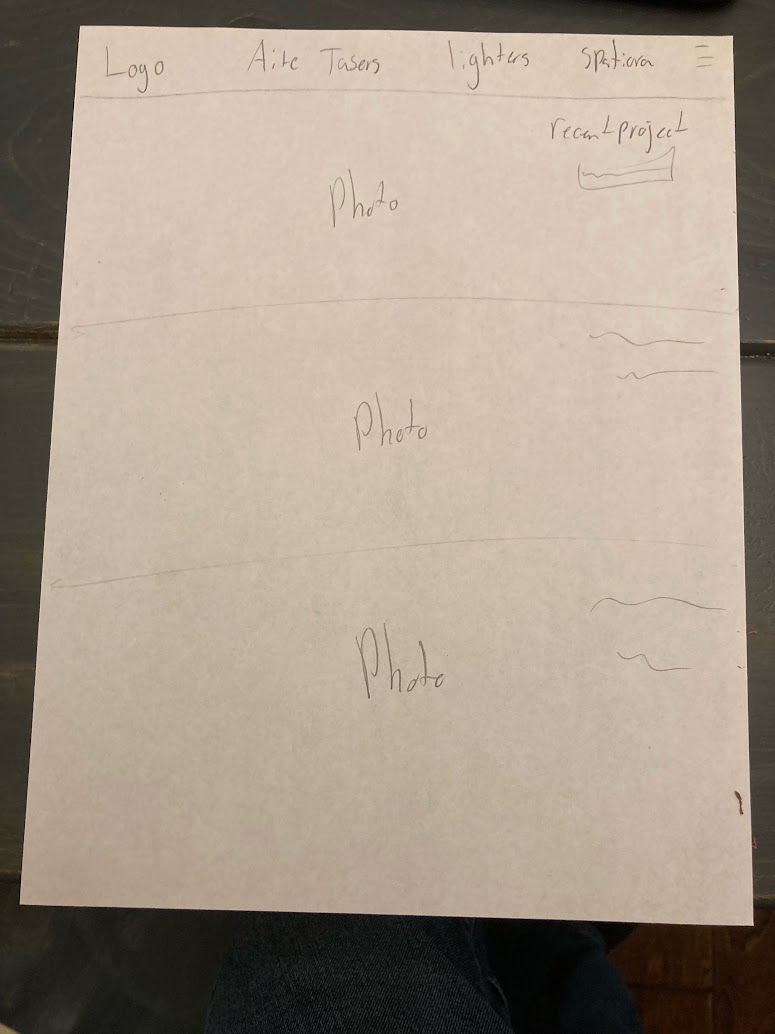 Logo Aite Tasers lighters Spatiora
recent project
Photo
Photo
Photo